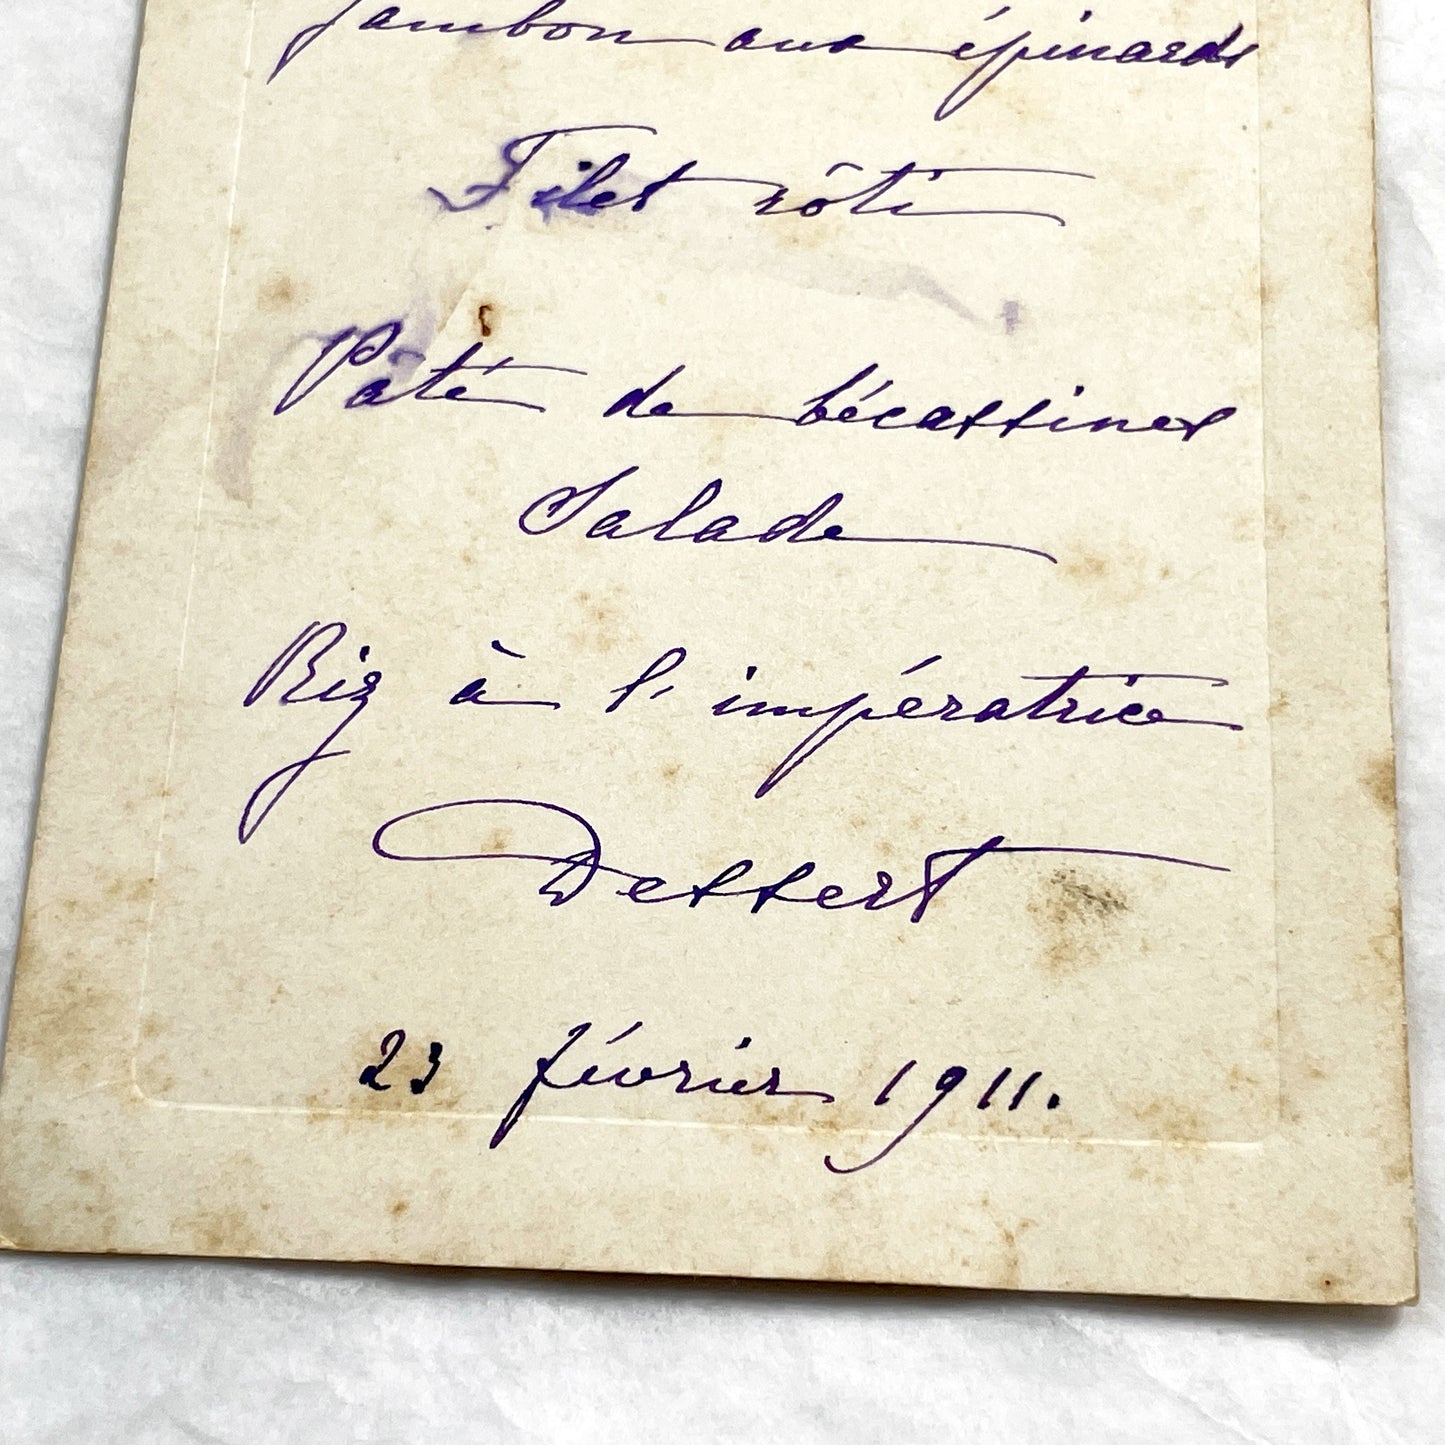 Jambon aux épinards
Filet rôti
Pâté de bécassines
Salade
Riz à l'impératrice
Dessert
23 février 1911.